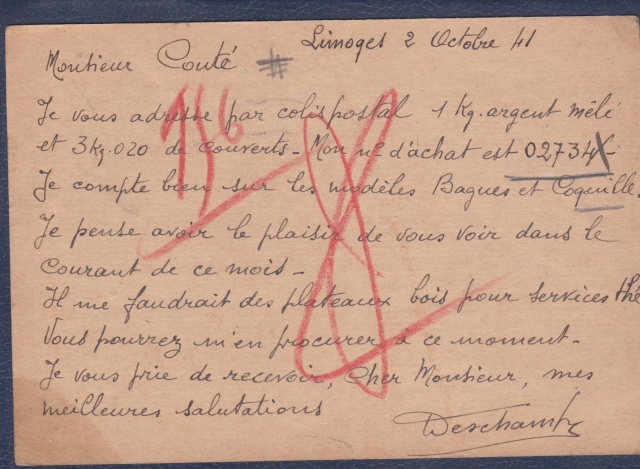 Limoges 2 Octobre 41
Monsieur Couté #
Je vous adresse par colis postal 1 Kg. argent mêlé
et 3Kg.020 de couverts - Mon nº d'achat est 02734
Je compte bien sur les modèles Bagues et Coquille.
Je pense avoir le plaisir de vous voir dans le
courant de ce mois -
Il me faudrait des plateaux bois pour services thé
Vous pourrez m'en procurer à ce moment -
Je vous prie de recevoir, Cher Monsieur, mes
meilleures salutations
Deschamps